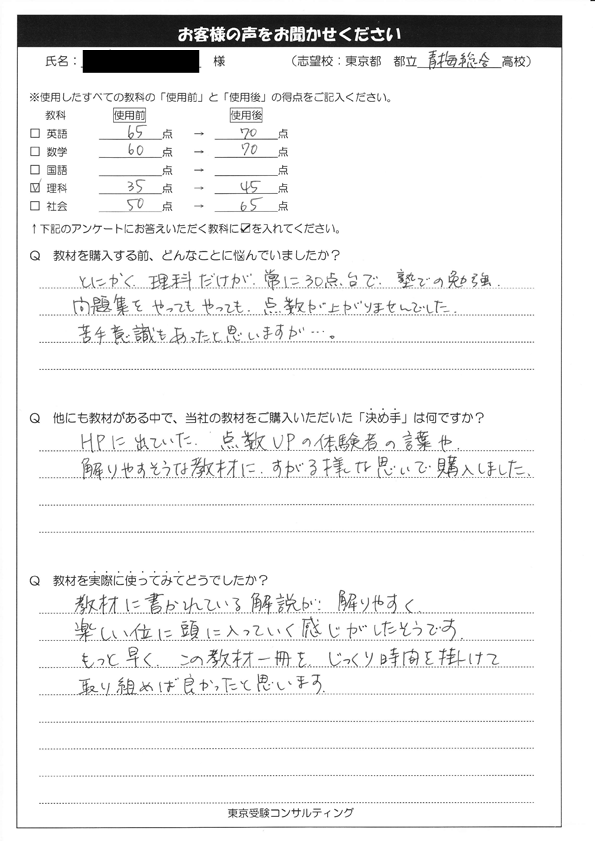 お客様の声をお聞かせください
氏名： 様 （志望校：東京都 都立 青梅総合 高校）
※使用したすべての教科の「使用前」と「使用後」の得点をご記入ください。
教科 使用前 使用後
□ 英語 65 点 → 70 点
□ 数学 60 点 → 70 点
□ 国語 点 → 点
☑ 理科 35 点 → 45 点
□ 社会 50 点 → 65 点
↑下記のアンケートにお答えいただく教科に☑を入れてください。
Q 教材を購入する前、どんなことに悩んでいましたか？
とにかく、理科だけが、常に30点台で、塾での勉強、
問題集をやってもやっても、点数が上がりませんでした。
苦手意識もあったと思いますが…。
Q 他にも教材がある中で、当社の教材をご購入いただいた「決め手」は何ですか？
HPに出ていた、点数UPの体験者の言葉や、
解りやすそうな教材に、すがる様な思いで購入しました。
Q 教材を実際に使ってみてどうでしたか？
教材に書かれている解説が、解りやすく、
楽しい位に頭に入っていく感じがしたそうです。
もっと早く、この教材一冊を、じっくり時間を掛けて
取り組めば良かったと思います。
東京受験コンサルティング